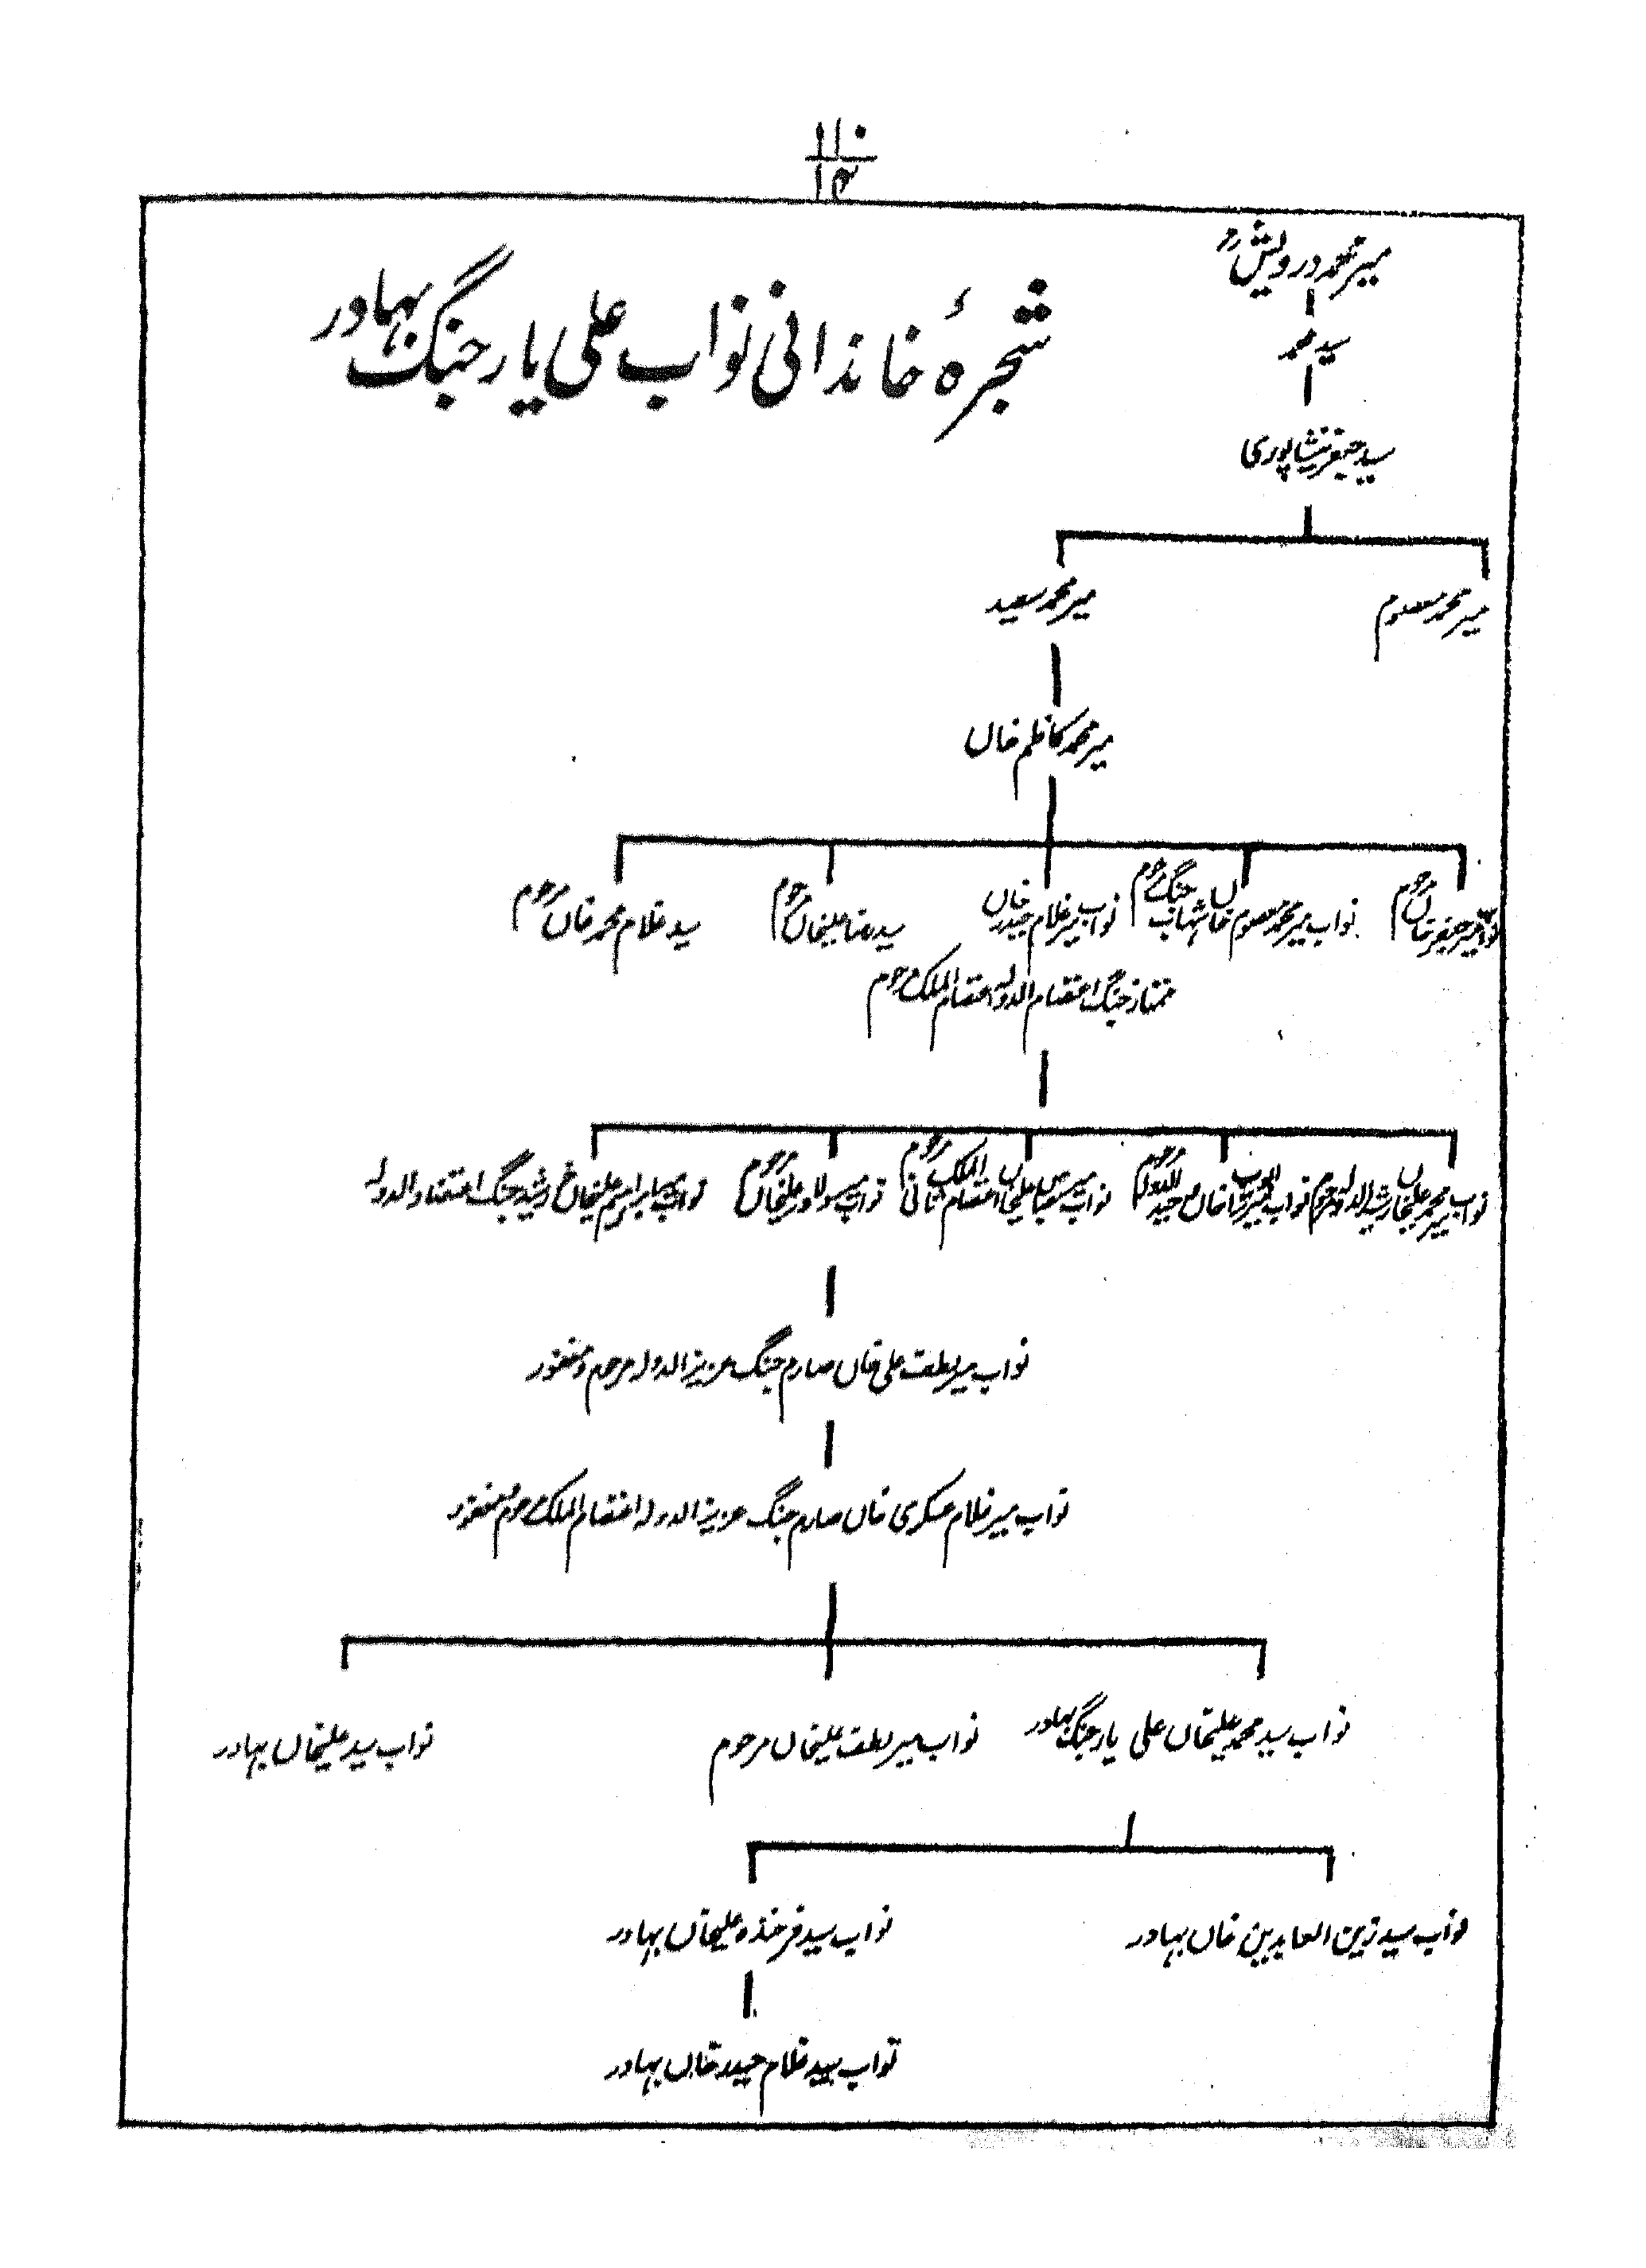 ۱۱۰
۱۳
شجرۂ خاندانی نواب علی یار جنگ بہادر
میر محمد درویشؒ
سید محمد
سید جعفر نیشاپوری
میر محمد معصوم
میر محمد سعید
میر محمد کاظم خاں
نواب میر جعفر خاں مرحوم
نواب میر محمد معصوم خاں شہاب جنگ مرحوم
نواب میر غلام حیدر خاں
ممتاز جنگ احتشام الدولہ احتشام الملک مرحوم
سید رضا علیخاں مرحوم
سید غلام محمد خاں مرحوم
نواب میر محمد علیخاں رشید الدولہ مرحوم
نواب میر عباس علیخاں احتشام الملک ثانی مرحوم
نواب میر دلاور علیخاں مرحوم
نواب میر ابراہیم علیخاں رشید جنگ اعتضاد الدولہ
نواب میر لطف علی خاں صارم جنگ عزیز الدولہ مرحوم و مغفور
نواب میر غلام عسکری خاں صارم جنگ عزیز الدولہ احتشام الملک مرحوم و مغفور
نواب سید محمد علیخاں علی یار جنگ بہادر
نواب میر لطف علیخاں مرحوم
نواب سید علیخاں بہادر
نواب سید زین العابدین خاں بہادر
نواب سید فرخندہ علیخاں بہادر
نواب سید غلام حیدر خاں بہادر